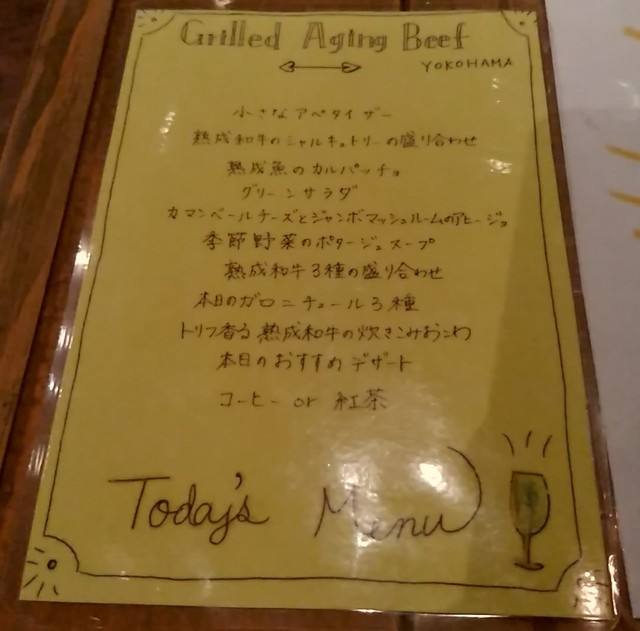 Grilled Aging Beef
YOKOHAMA
小さなアペタイザー
熟成和牛のシャルキュトリーの盛り合わせ
熟成魚のカルパッチョ
グリーンサラダ
カマンベールチーズとジャンボマッシュルームのアヒージョ
季節野菜のポタージュスープ
熟成和牛3種の盛り合わせ
本日のガロニチュール3種
トリフ香る熟成和牛の炊きこみおこわ
本日のおすすめデザート
コーヒー or 紅茶
Today's Menu